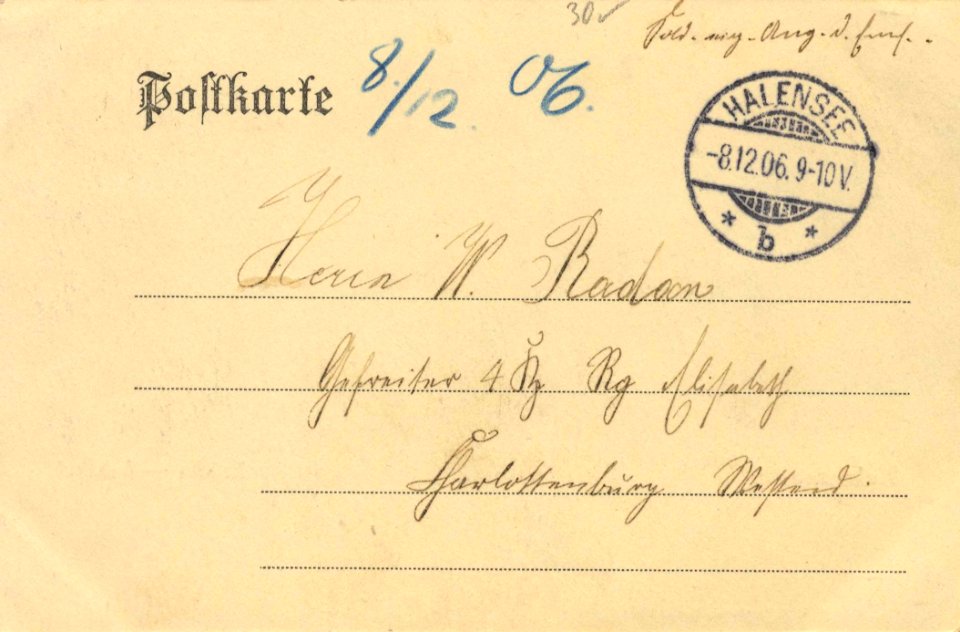 30
Sold. eig. Ang. d. Empf.
Postkarte
8./12. 06.
HALENSEE
-8.12.06. 9-10V.
* b *
Herrn W. Radam
Gefreiter 4 K Rg Elisabeth
Charlottenburg Westend.